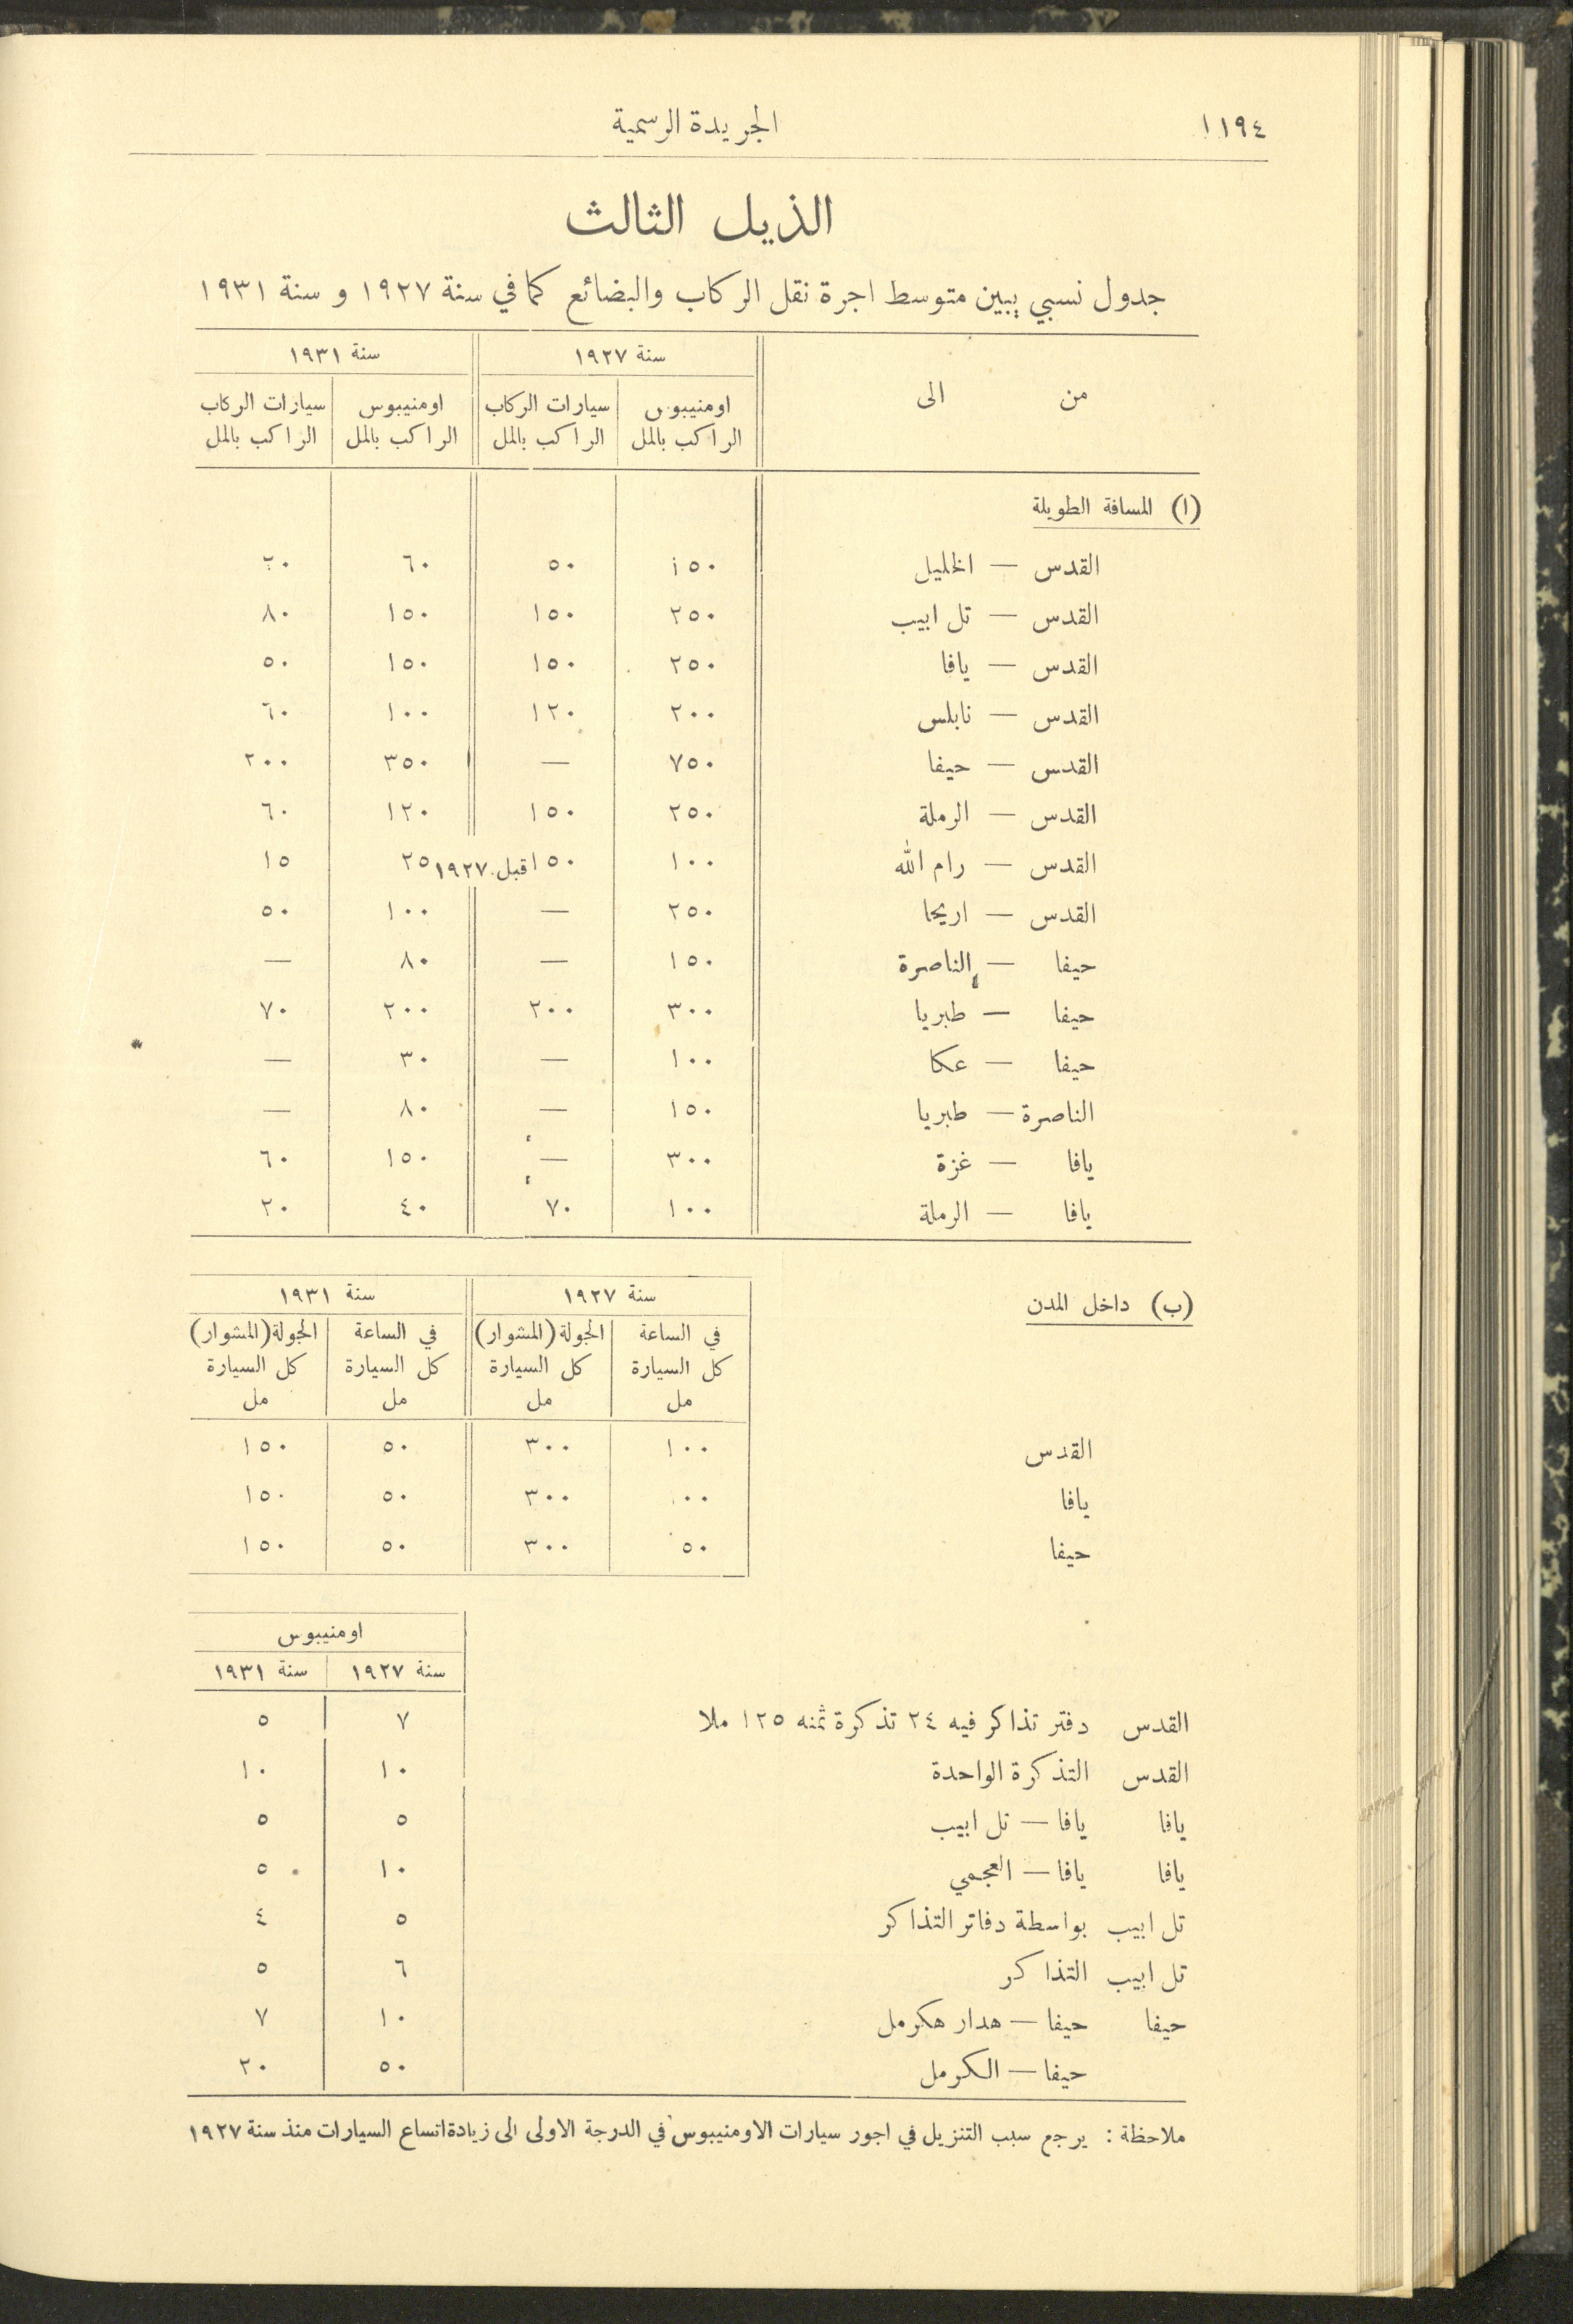 ١١٩٤ الجريدة الرسمية
الذيل الثالث
جدول نسبي يبين متوسط اجرة نقل الركاب والبضائع كما في سنة ١٩٢٧ و سنة ١٩٣١
من الى سنة ١٩٢٧ سنة ١٩٣١
اومنيبوس سيارات الركاب اومنيبوس سيارات الركاب
الراكب بالمل الراكب بالمل الراكب بالمل الراكب بالمل
(ا) المسافة الطويلة
القدس — الخليل ١٥٠ ٥٠ ٦٠
القدس — تل ابيب ٢٥٠ ١٥٠ ١٥٠ ٨٠
القدس — يافا ٢٥٠ ١٥٠ ١٥٠ ٥٠
القدس — نابلس ٢٠٠ ١٢٠ ١٠٠ ٦٠
القدس — حيفا ٧٥٠ — ٣٥٠ ٢٠٠
القدس — الرملة ٢٥٠ ١٥٠ ١٢٠ ٦٠
القدس — رام الله ١٠٠ ٥٠ قبل ١٩٢٧ ٢٥ ١٥
القدس — اريحا ٢٥٠ — ١٠٠ ٥٠
حيفا — الناصرة ١٥٠ — ٨٠ —
حيفا — طبريا ٣٠٠ ٢٠٠ ٢٠٠ ٧٠
حيفا — عكا ١٠٠ — ٣٠ —
الناصرة — طبريا ١٥٠ — ٨٠ —
يافا — غزة ٣٠٠ — ١٥٠ ٦٠
يافا — الرملة ١٠٠ ٧٠ ٤٠ ٢٠
(ب) داخل المدن سنة ١٩٢٧ سنة ١٩٣١
في الساعة الجولة (المشوار) في الساعة الجولة (المشوار)
كل السيارة كل السيارة كل السيارة كل السيارة
مل مل مل مل
القدس ١٠٠ ٣٠٠ ٥٠ ١٥٠
يافا ٠٠ ٣٠٠ ٥٠ ١٥٠
حيفا ٥٠ ٣٠٠ ٥٠ ١٥٠
اومنيبوس
سنة ١٩٢٧ سنة ١٩٣١
القدس دفتر تذاكر فيه ٢٤ تذكرة ثمنه ١٢٥ ملا ٧ ٥
القدس التذكرة الواحدة ١٠ ١٠
يافا يافا — تل ابيب ٥ ٥
يافا يافا — العجمي ١٠ ٥
تل ابيب بواسطة دفاتر التذاكر ٥ ٤
تل ابيب التذاكر ٦ ٥
حيفا حيفا — هدار هكرمل ١٠ ٧
حيفا — الكرمل ٥٠ ٢٠
ملاحظة : يرجع سبب التنزيل في اجور سيارات الاومنيبوس في الدرجة الاولى الى زيادة اتساع السيارات منذ سنة ١٩٢٧